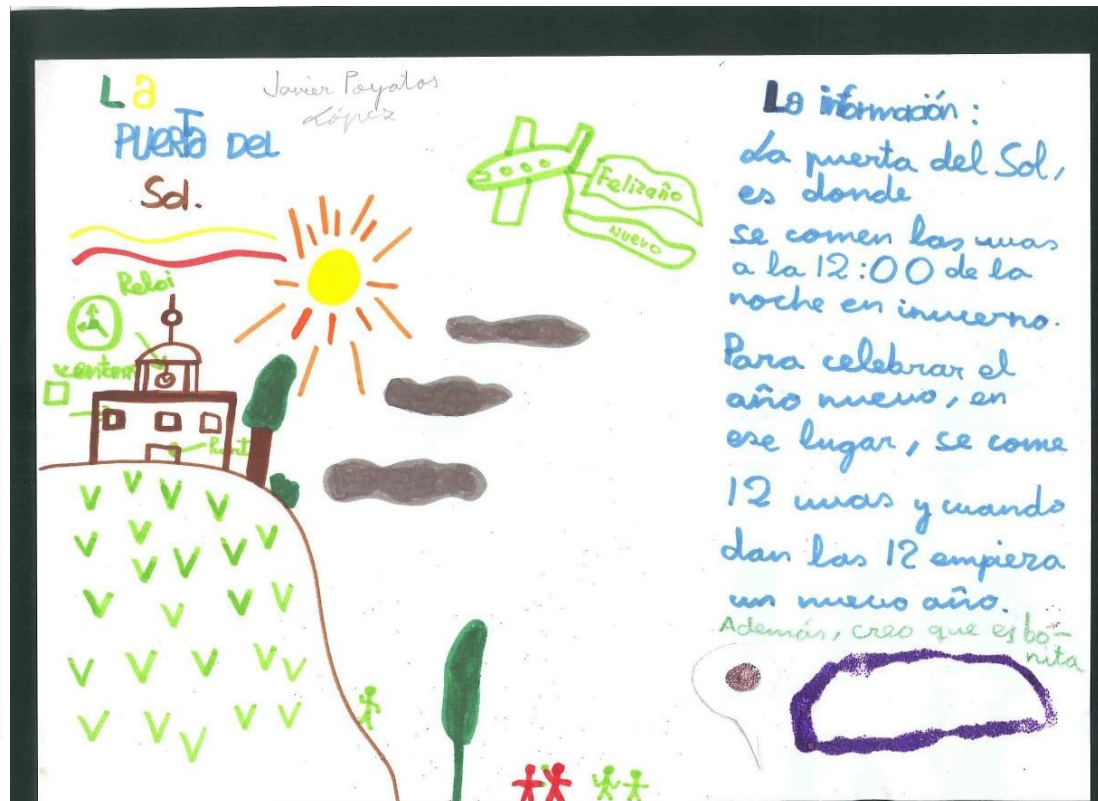 La
PUERTa DEL
Sol.
Javier Poyatos
López
Feliz año
Nuevo
Reloi
ventana
Puerta
La información:
La puerta del Sol,
es donde
se comen las uvas
a la 12:00 de la
noche en invierno.
Para celebrar el
año nuevo, en
ese lugar, se come
12 uvas y cuando
dan las 12 empieza
un nuevo año.
Además, creo que es bo-
nita